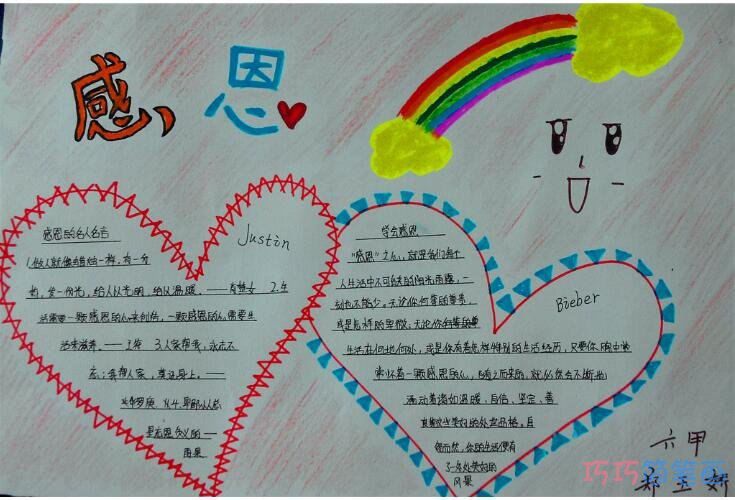 感恩
感恩的名人名言
Justin
1.做人就像蜡烛一样，有一分
热，发一份光，给人以光明，给以温暖。——肖楚女 2.生
活需要一颗感恩的心来创伤，一颗感恩的心需要生
活来滋养。—— 3.人家帮我，永志不
忘；我帮人家，莫记心上。——
华罗庚
学会感恩
"感恩"之心，就是我们每个
人生活中不可缺的阳光雨露，一
刻也不能少。无论你何等的尊贵，
或是怎样的卑微；无论你
生活在何地何处，或是你有着怎样特别的生活经历，只要你胸中常
常怀着一颗感恩的心，随之而来的，就必然会不断地
涌动着诸如温暖、自信、坚定、善
良
的处世品格。自
然而然，你的生活便有
了一处处美好的
风景
Bieber
六甲
巧巧简笔画